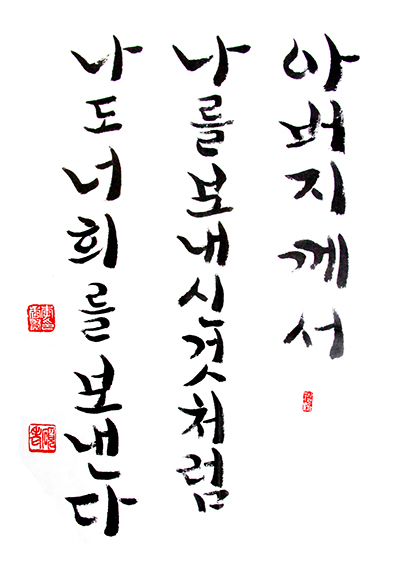 아버지께서
나를보내신것처럼
나도너희를보낸다